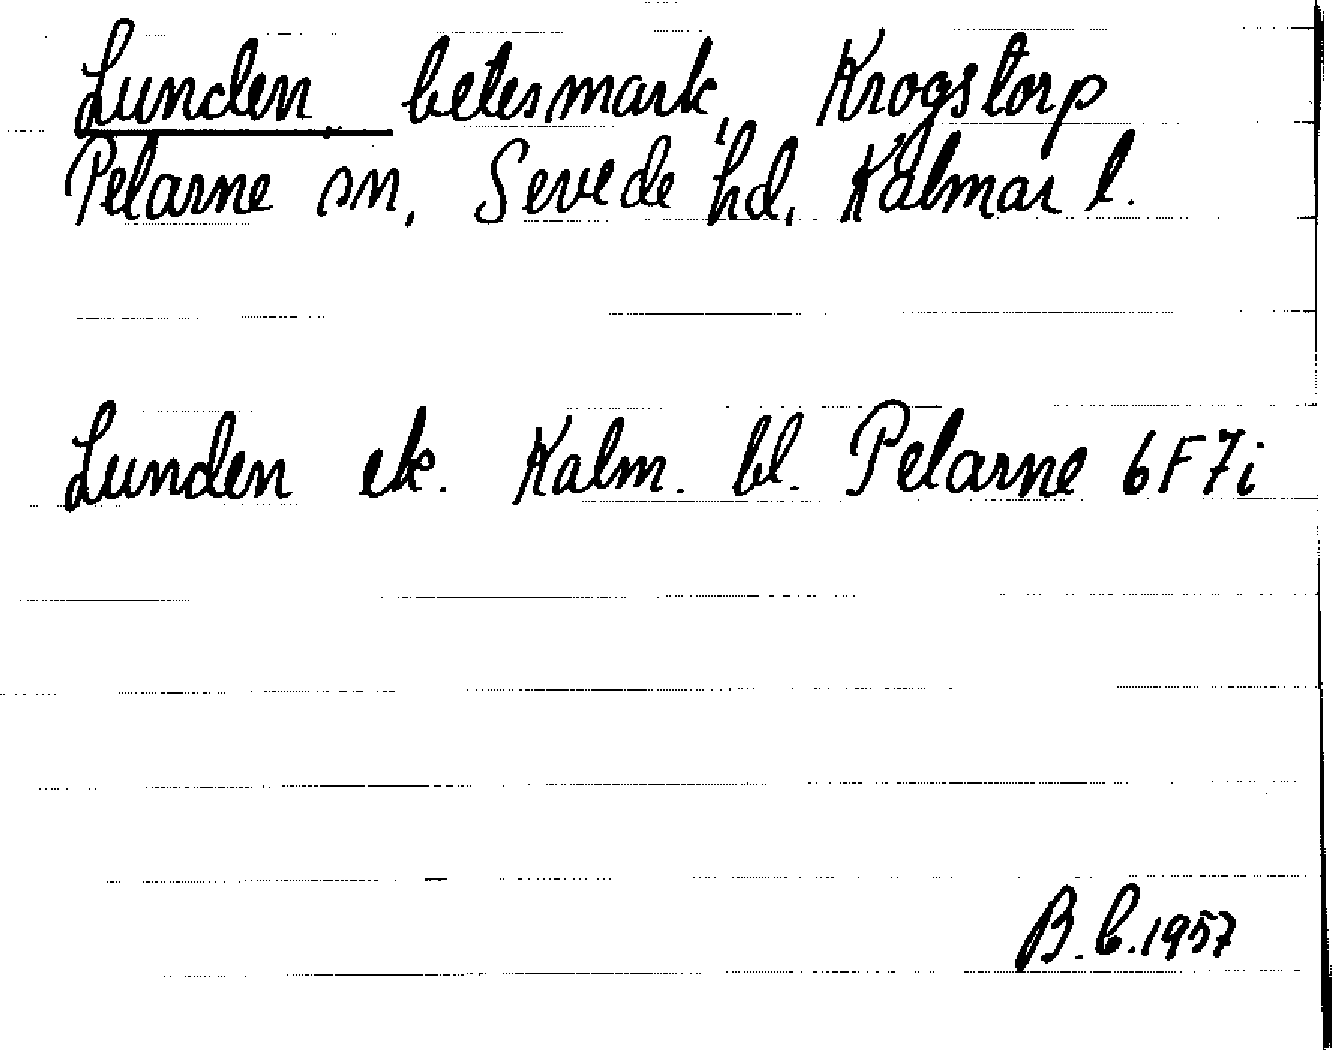 Lunden, betesmark, Krogstorp
Pelarne sn, Sevede hd, Kalmar l.
Lunden ek. Kalm. bl. Pelarne 6F7i
B.C. 1957